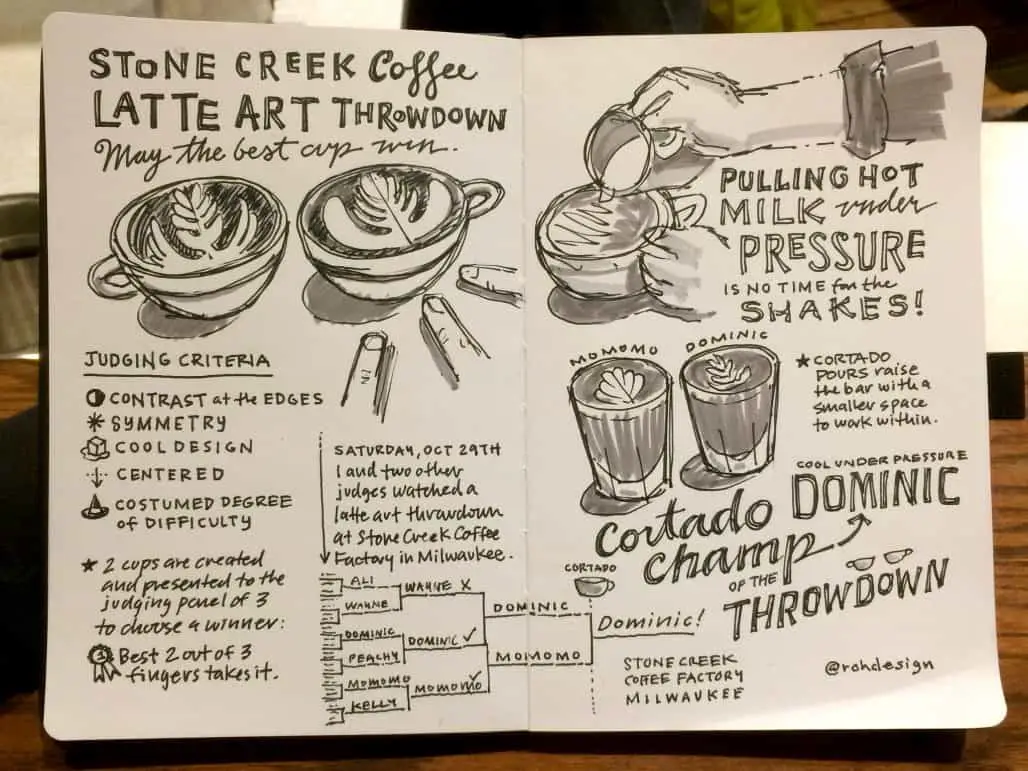 STONE CREEK Coffee
LATTE ART THROWDOWN
May the best cup win.
JUDGING CRITERIA
CONTRAST at the EDGES
SYMMETRY
COOL DESIGN
CENTERED
COSTUMED DEGREE
of DIFFICULTY
★ 2 cups are created
and presented to the
judging panel of 3
to choose a winner:
Best 2 out of 3
fingers takes it.
SATURDAY, OCT 29TH
I and two other
judges watched a
latte art throwdown
at Stone Creek Coffee
Factory in Milwaukee.
ALI
WAYNE
DOMINIC
PEACHY
MOMOMO
KELLY
WAYNE X
DOMINIC ✓
MOMOMO ✓
DOMINIC
MOMOMO
PULLING HOT
MILK under
PRESSURE
IS NO TIME for the
SHAKES!
MOMOMO
DOMINIC
★ CORTADO
POURS raise
the bar with a
smaller space
to work within.
COOL UNDER PRESSURE
DOMINIC
Cortado
champ
OF THE
THROWDOWN
CORTADO
Dominic!
STONE CREEK
COFFEE FACTORY
MILWAUKEE
@rohdesign